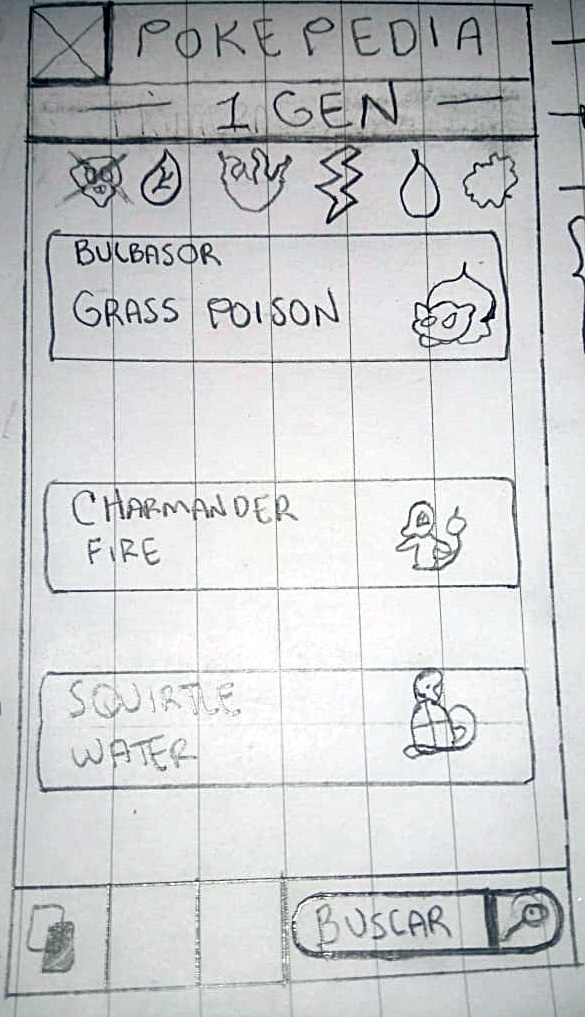 POKEPEDIA
1 GEN
BULBASOR
GRASS POISON
CHARMANDER
FIRE
SQUIRTLE
WATER
BUSCAR